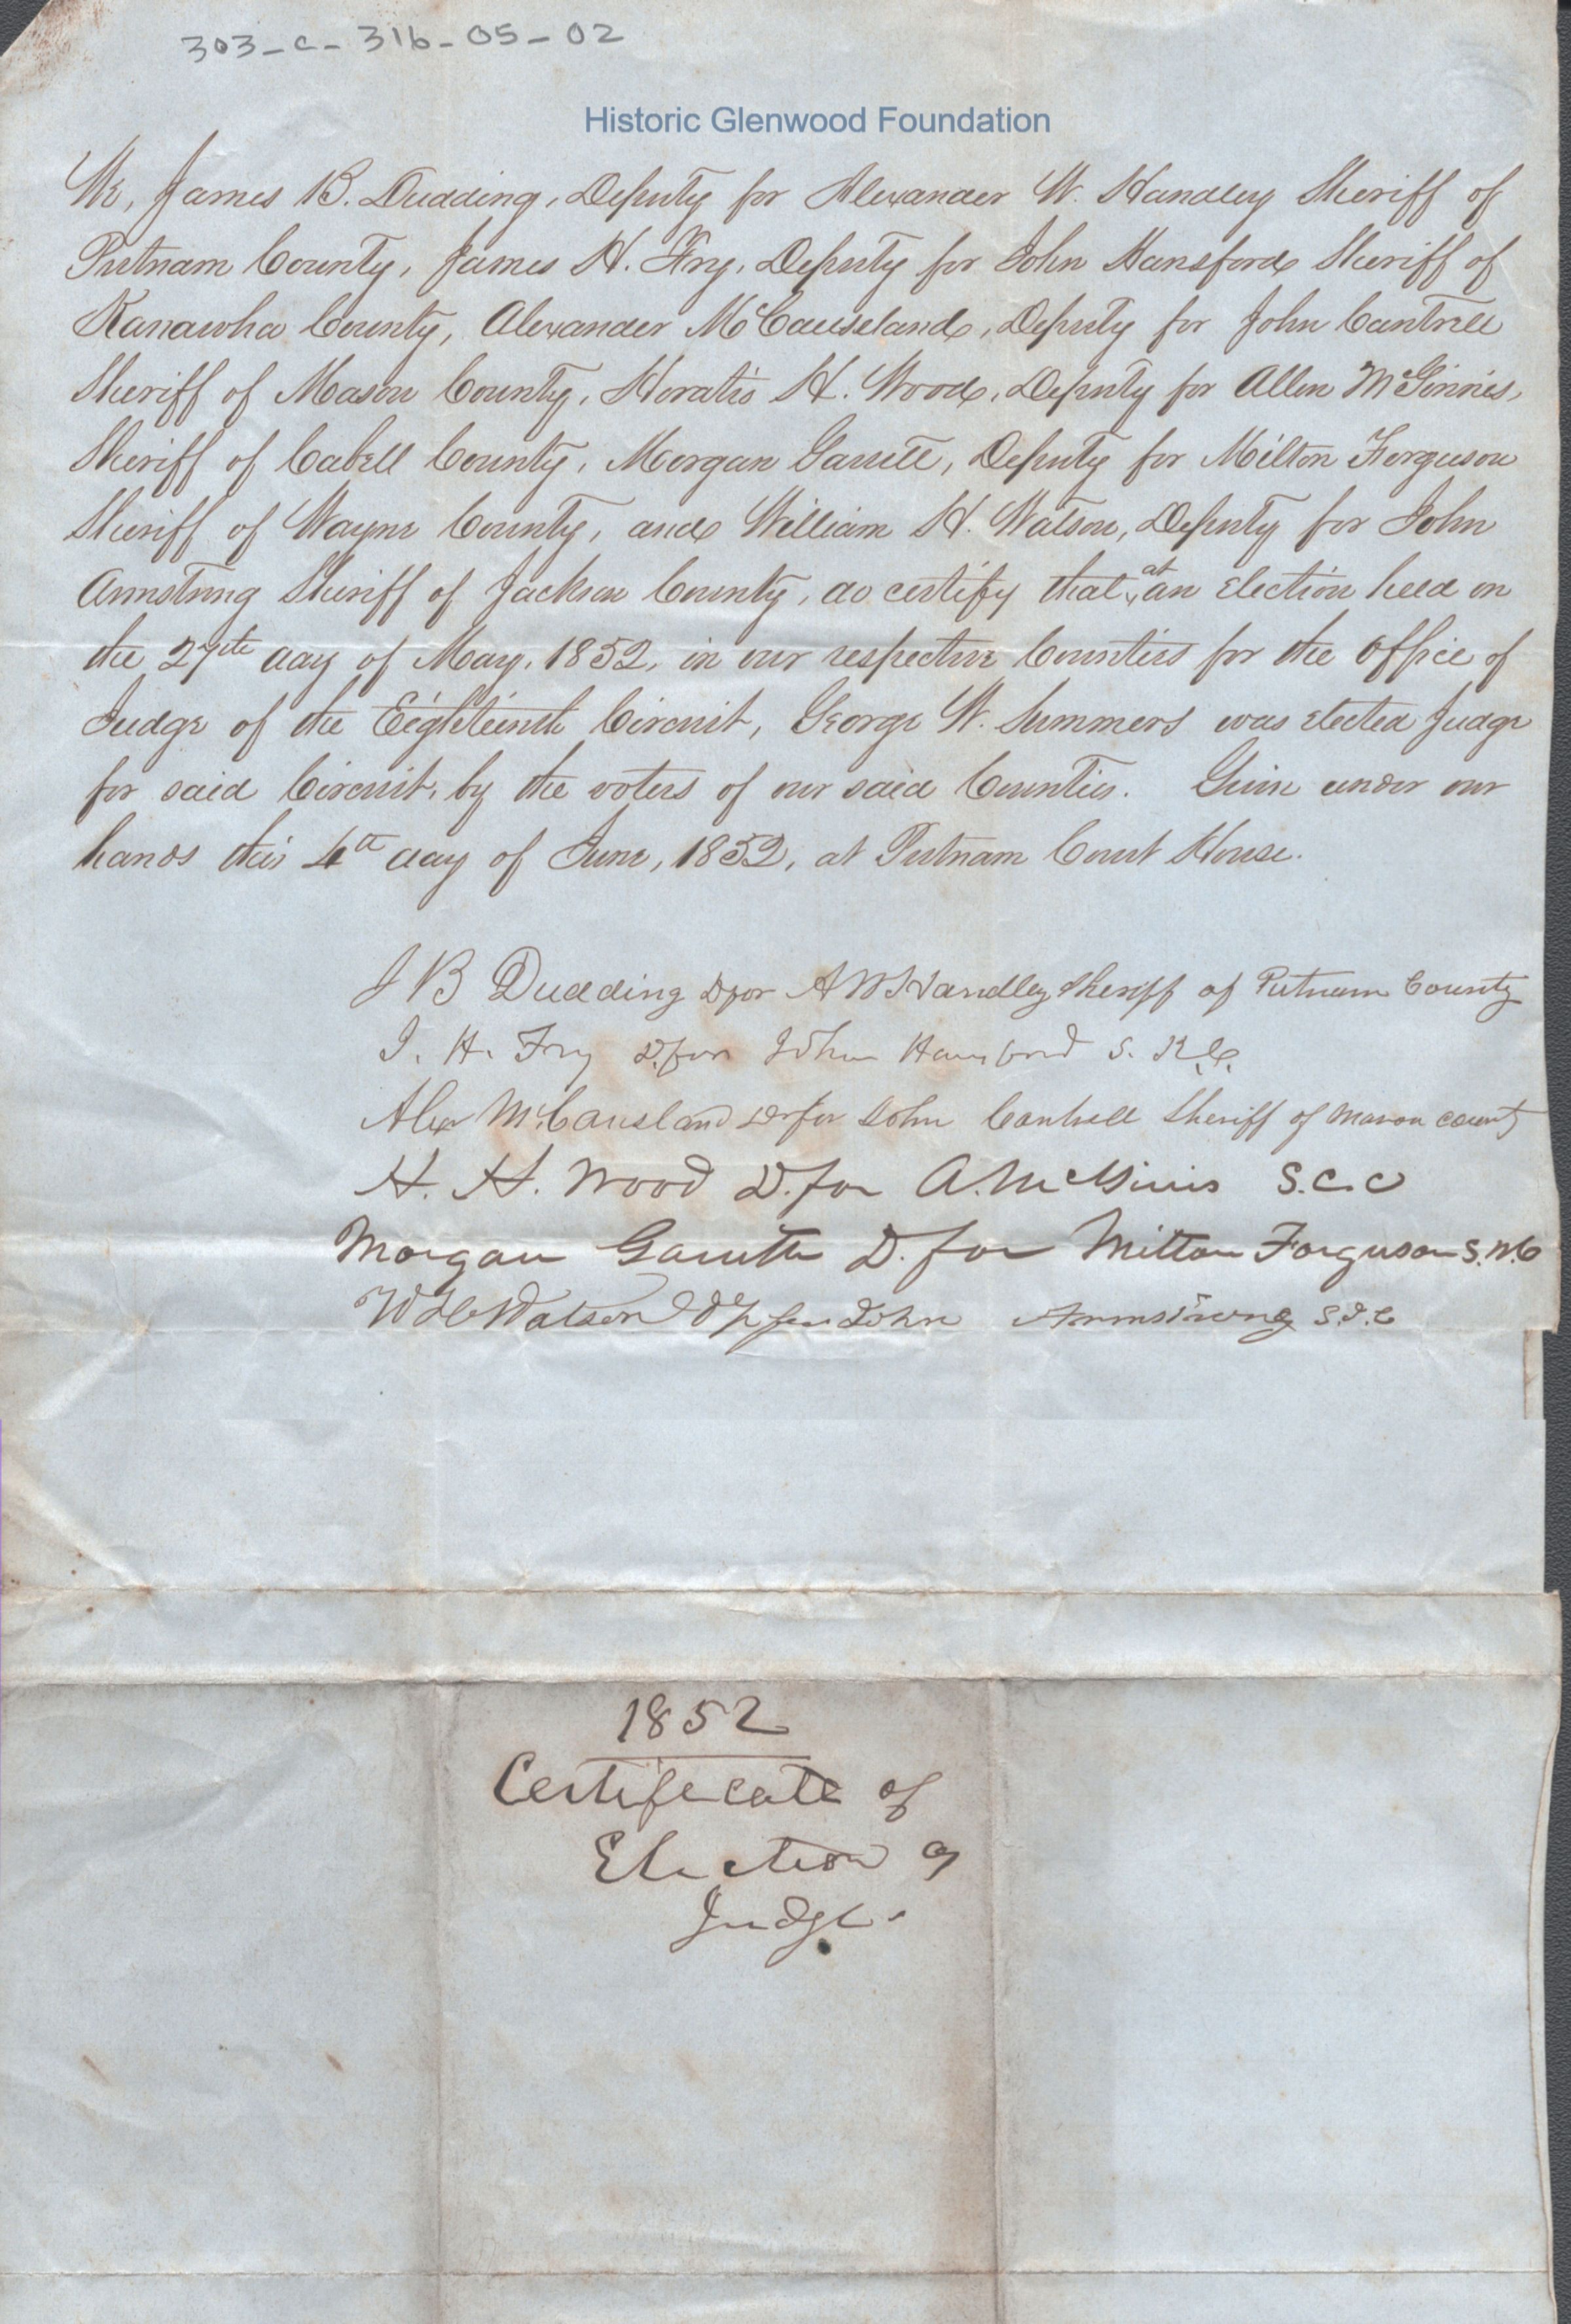 303-C-316-05-02
Historic Glenwood Foundation
We, James B. Dudding, Deputy for Alexander W. Handley Sheriff of
Putnam County, James H. Fry, Deputy for John Hansford Sheriff of
Kanawha County, Alexander McCauseland, Deputy for John Cantrell
Sheriff of Mason County, Horatio H. Wood, Deputy for Allen McGinnis,
Sheriff of Cabell County, Morgan Garrett, Deputy for Milton Ferguson
Sheriff of Wayne County, and William H. Watson, Deputy for John
Armstrong Sheriff of Jackson County, do certify that at an election held on
the 27th day of May, 1852, in our respective Counties for the office of
Judge of the Eighteenth Circuit, George W. Summers was elected Judge
for said Circuit, by the voters of our said Counties. Given under our
hands this 4th day of June, 1852, at Putnam Court House.
J B Dudding D for A W Handley Sheriff of Putnam County
J. H. Fry D. for John Hansford S. K.C.
Alex McCausland D for John Cantrell Sheriff of Mason county
H. H. Wood D. for A. McGinis S.C.C
Morgan Garrett D. for Milton Ferguson S.W.C
W H Watson Dp for John Armstrong S.J.C
1852
Certificate of
Election of
Judge.